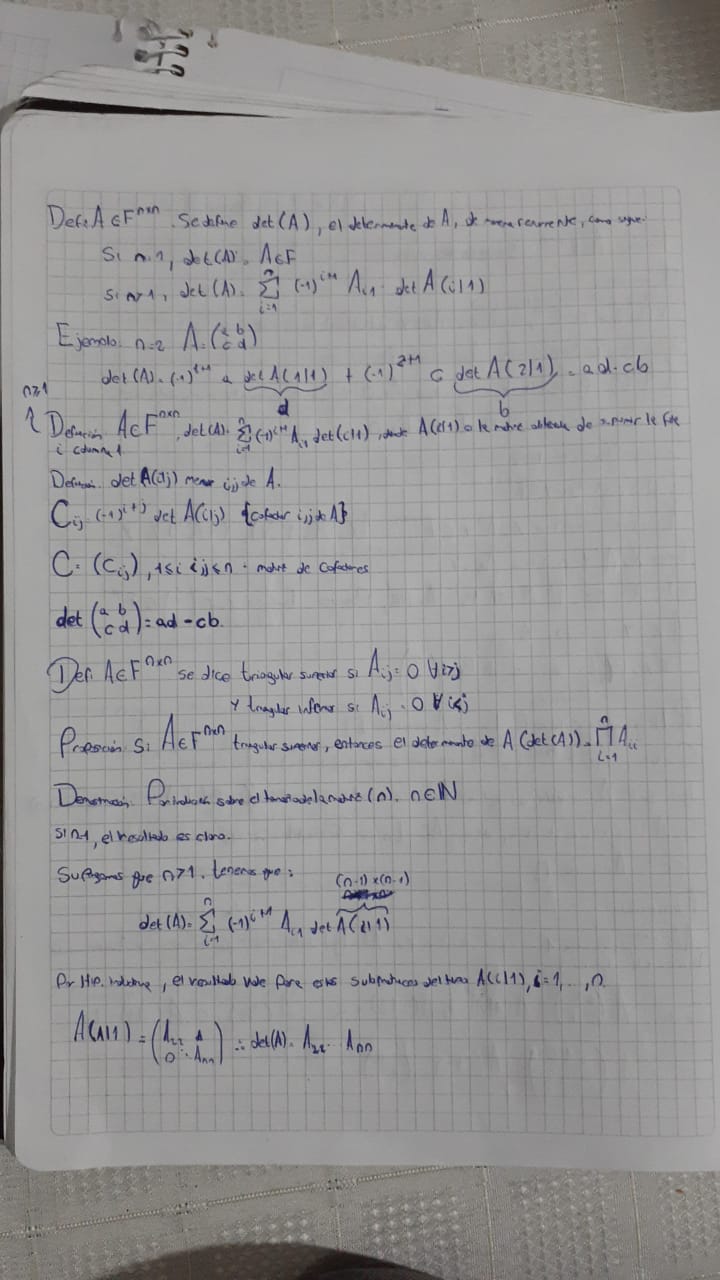 Def: A ∈ F^{n×n}. Se define det(A), el determinante de A, de manera recurrente, como sigue.
Si n=1, det(A) = A ∈ F
Si n>1, det(A) = \sum_{i=1}^{n} (-1)^{i+1} A_{i1} det A(i|1)
Ejemplo: n=2 A = (a b c d)
det(A) = (-1)^{1+1} a det A(1|1) + (-1)^{2+1} c det A(2|1) = ad - cb
d b
n≥1
Definición A ∈ F^{n×n}, det(A) = \sum_{i=1}^{n} (-1)^{i+1} A_{i1} det(i|1), donde A(i|1) es la matriz obtenida de suprimir la fila
i columna 1
Definición. det A(i|j) menor i,j de A.
C_{ij} = (-1)^{i+j} det A(i|j) {cofactor i,j de A}
C = (C_{ij}), 1 ≤ i, j ≤ n = matriz de Cofactores
det (a b c d) = ad - cb.
Def: A ∈ F^{n×n} se dice triangular superior si A_{ij} = 0 ∀ i>j
y triangular inferior si A_{ij} = 0 ∀ i<j
Proposición Si A ∈ F^{n×n} triangular superior, entonces el determinante de A (det(A)) = \prod_{i=1}^{n} A_{ii}
Demostración. Por inducción sobre el tamaño de la matriz (n). n ∈ ℕ
Si n=1, el resultado es claro.
Supongamos que n>1. tenemos que:
(n-1)×(n-1)
det(A) = \sum_{i=1}^{n} (-1)^{i+1} A_{i1} det A(i|1)
Por Hip. inductiva, el resultado vale para estas submatrices del tipo A(i|1), i=1,..,n.
A(1|1) = (A_{22} A 0 ⋱ A_{nn}) ∴ det(A) = A_{22} ·· A_{nn}